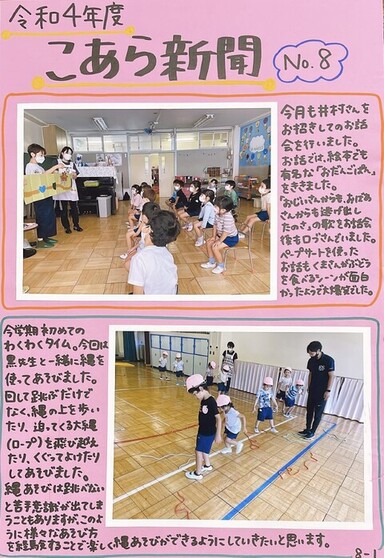 令和4年度
こあら新聞
No.8
今月も井村さんを
お招きしてのお話
会を行いました。
お話では、絵本でも
有名な「おだんごぱん」
をききました。
「おじいさんからも、おばあ
さんからも逃げ出し
たのさ」の歌をお話会
後も口ずさんでいました。
ペープサートを使った
お話もくまさんがぶどう
を食べるシーンが面白
かったようで大爆笑でした。
今学期初めての
わくわくタイム。今回は
黒先生と一緒に縄を
使ってあそびました。
回して跳ぶだけで
なく、縄の上を歩い
たり、迫ってくる大縄
(ロープ)を飛び越え
たり、くぐってよけたり
してあそびました。
縄あそびは跳べない
と苦手意識が出てしま
うこともありますが、このよう
に様々なあそび方
を経験することで楽しく縄あそびができるようにしていきたいと思います。